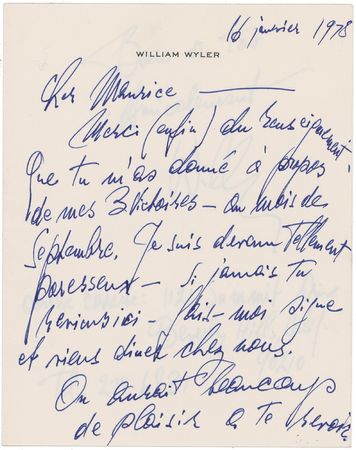 16 janvier 1978
WILLIAM WYLER
Cher Maurice —
Merci (enfin) du renseignement
que tu m'as donné à propos
de mes 3 — au mois de
Septembre. Je suis devenu tellement
paresseux — si jamais tu
reviens ici — fais-moi signe
et viens diner chez nous.
On aurait beaucoup
de plaisir a te revoir